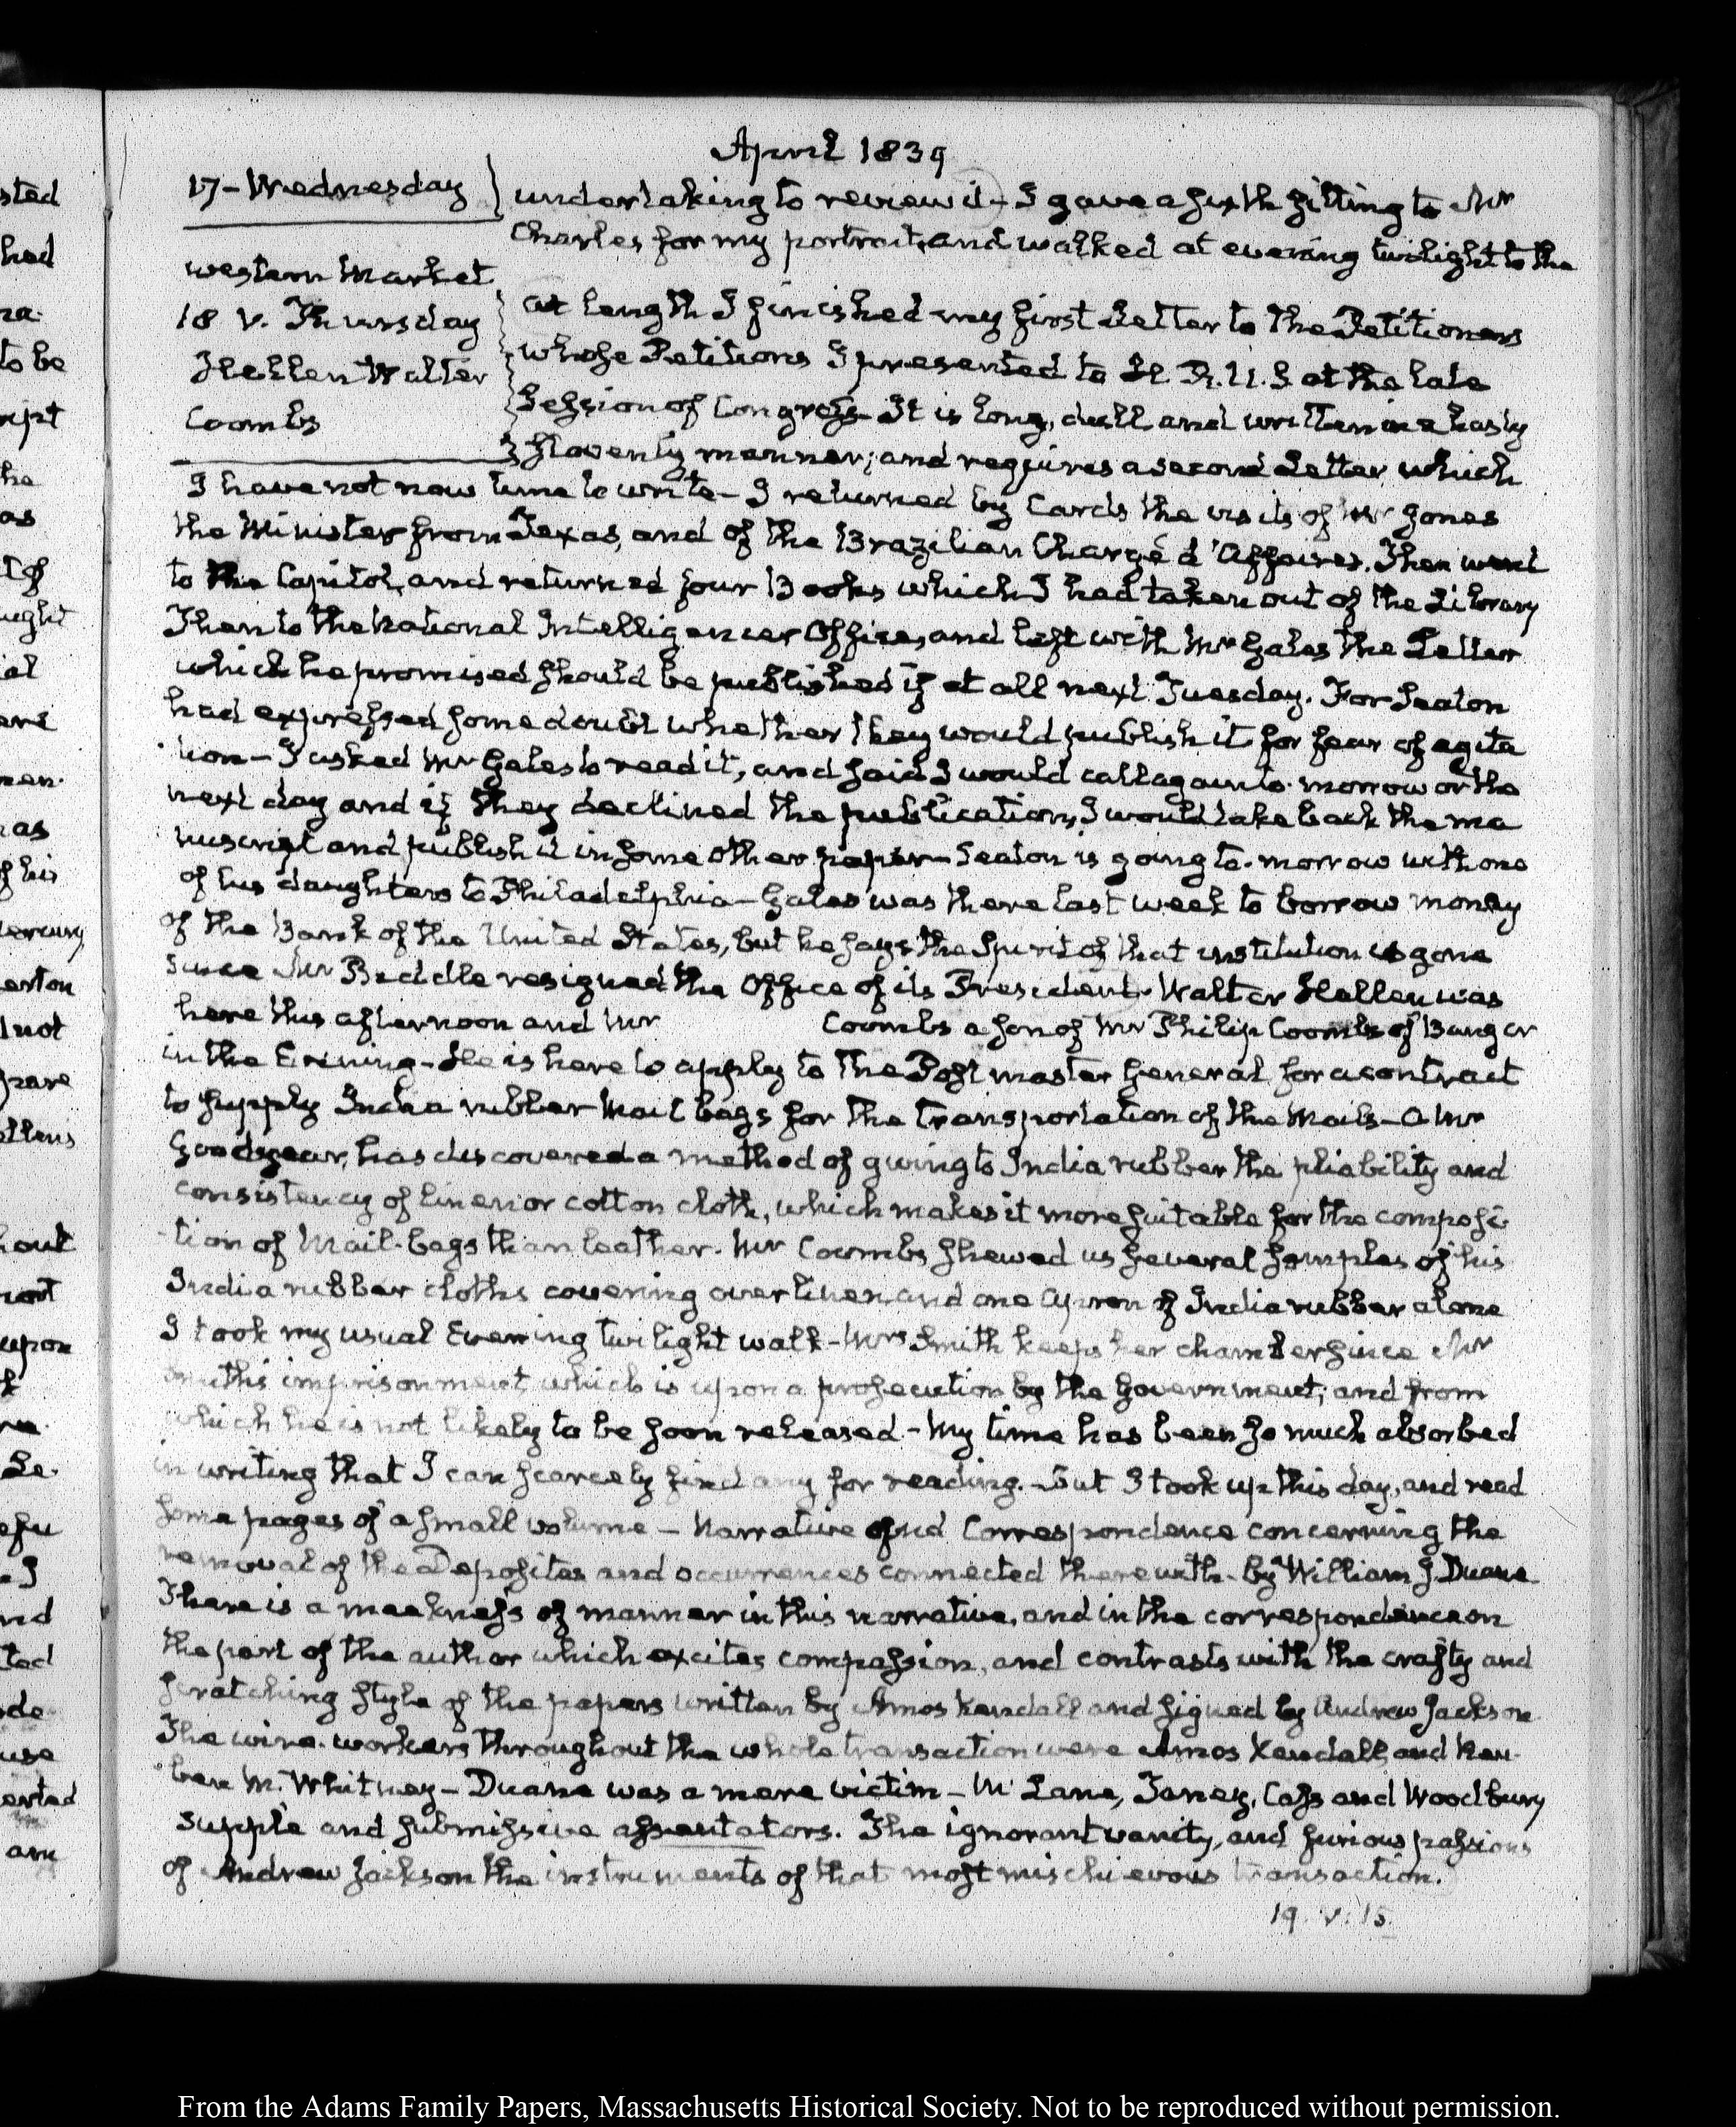 April 1839
17 - Wednesday
undertaking to review it - I gave a sixth sitting to Mr
Charles for my portrait, and walked at evening twilight to the
western Market.
18 V. Thursday
Hellen Walter
Coombs
At length I finished my first Letter to the Petitioners
whose Petitions I presented to H. R. U. S at the late
Session of Congress - It is long, dull and written in a hasty
slovenly manner; and requires a second Letter which
I have not now time to write - I returned by Cards the visits of Mr Jones
the Minister from Texas, and of the Brazilian Chargé d'Affaires. Then went
to the Capitol, and returned four Books which I had taken out of the Library
Then to the National Intelligencer Office, and left with Mr Gales the Letter
which he promised should be published if at all next Tuesday. For Seaton
had expressed some doubt whether they would publish it for fear of agita
tion - I asked Mr Gales to read it, and said I would call again to-morrow or the
next day and if they declined the publication, I would take back the ma
nuscript and publish it in some other paper - Seaton is going to-morrow with one
of his daughters to Philadelphia - Gales was there last week to borrow money
of the Bank of the United States, but he says the Spirit of that institution is gone
since Mr Biddle resigned the Office of its President. Walter Hellen was
here this afternoon and Mr Coombs a son of Mr Philip Coombs of Bangor
in the Evening - He is here to apply to the Postmaster General for a contract
to supply India rubber Mail bags for the transportation of the Mails - A Mr
Goodyear, has discovered a method of giving to India rubber the pliability and
consistency of linen or cotton cloth, which makes it more suitable for the composi-
tion of Mail-bags than leather. Mr Coombs shewed us several samples of his
India rubber cloths covering over linen, and one Apron of India rubber alone
I took my usual Evening twilight walk - Mrs Smith keeps her chamber since Mr
Smith's imprisonment which is upon a prosecution by the Government; and from
which he is not likely to be soon released - My time has been so much absorbed
in writing that I can scarcely find any for reading. But I took up this day, and read
some pages of a small volume - Narrative and Correspondence concerning the
removal of the Deposites and occurrences connected therewith - by William J. Duane.
There is a meekness of manner in this narrative, and in the correspondence on
the part of the author which excites compassion, and contrasts with the crafty and
scratching style of the papers written by Amos Kendall and signed by Andrew Jackson
The wire-workers throughout the whole transaction were Amos Kendall, and Reu-
ben M. Whitney - Duane was a mere victim - McLane, Taney, Cass and Woodbury
supple and submissive assentators. The ignorant vanity, and furious passions
of Andrew Jackson the instruments of that most mischievous transaction.
19. V. 15.
From the Adams Family Papers, Massachusetts Historical Society. Not to be reproduced without permission.